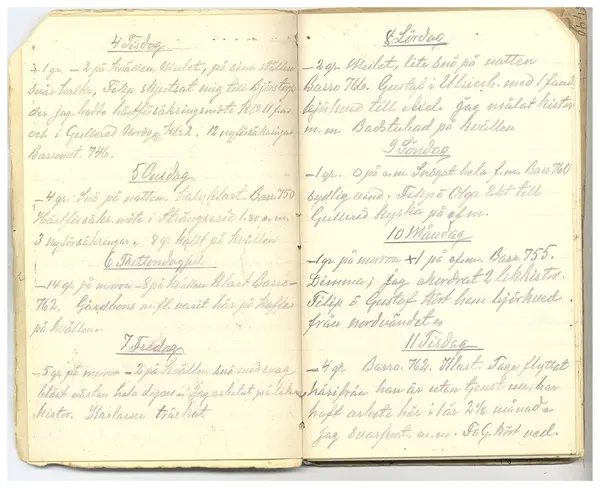 4 Tisdag
+1 gr. – 2 på kvällen Mulet, på sina ställen
svår halka, Filip skjutsat mig till
der jag hade hästförsäkringsmöte Kl 11 f.m
och i Gullered Kl 2. 12 nyförsäkringar
Baromet. 746.
5 Onsdag
–4 gr. Snö på natten, halfklart Barr 750
Hästförsäk. möte i Strängsered 1.30 e.m.
3 nyförsäkringar. 8 gr kallt på kvällen
6 Trettondagjul
–14 gr på moron –8 på kvällen klart Barro
762. Gärdbons m.fl. varit här på kaffe
på kvällen.
7 Fredag
–5 gr på moron –2 på kvällen snö med svag
blåst nästan hela dagen. Jag arbetat på
kistor. Karlarne träskat.
8 Lördag
–2 gr. Mulet, lite snö på natten
Barro 760. Gustaf i Ulriceh. med 1 famn
björkved till Jag målat kistor
m.m. Badstubad på kvällen
9 Söndag
–1 gr. 0 på e.m. Snögat hela f.m. Barr 760
sydlig vind. Filip o Olga åkt till
Gullered kyrka på ef.m.
10 Måndag
–1 gr på moron +1 på ef.m. Barr. 755.
Dimma; jag 2 likkistor.
Filip o Gustaf kört hem björkved
från nordvändet
11 Tisdag
–4 gr Barro. 762. Klart. Tage flyttat
härifrån han är utan tjenst nu, har
haft arbete här i år 2½ månad
Jag svarfvat m.m. F o G. kört ved.